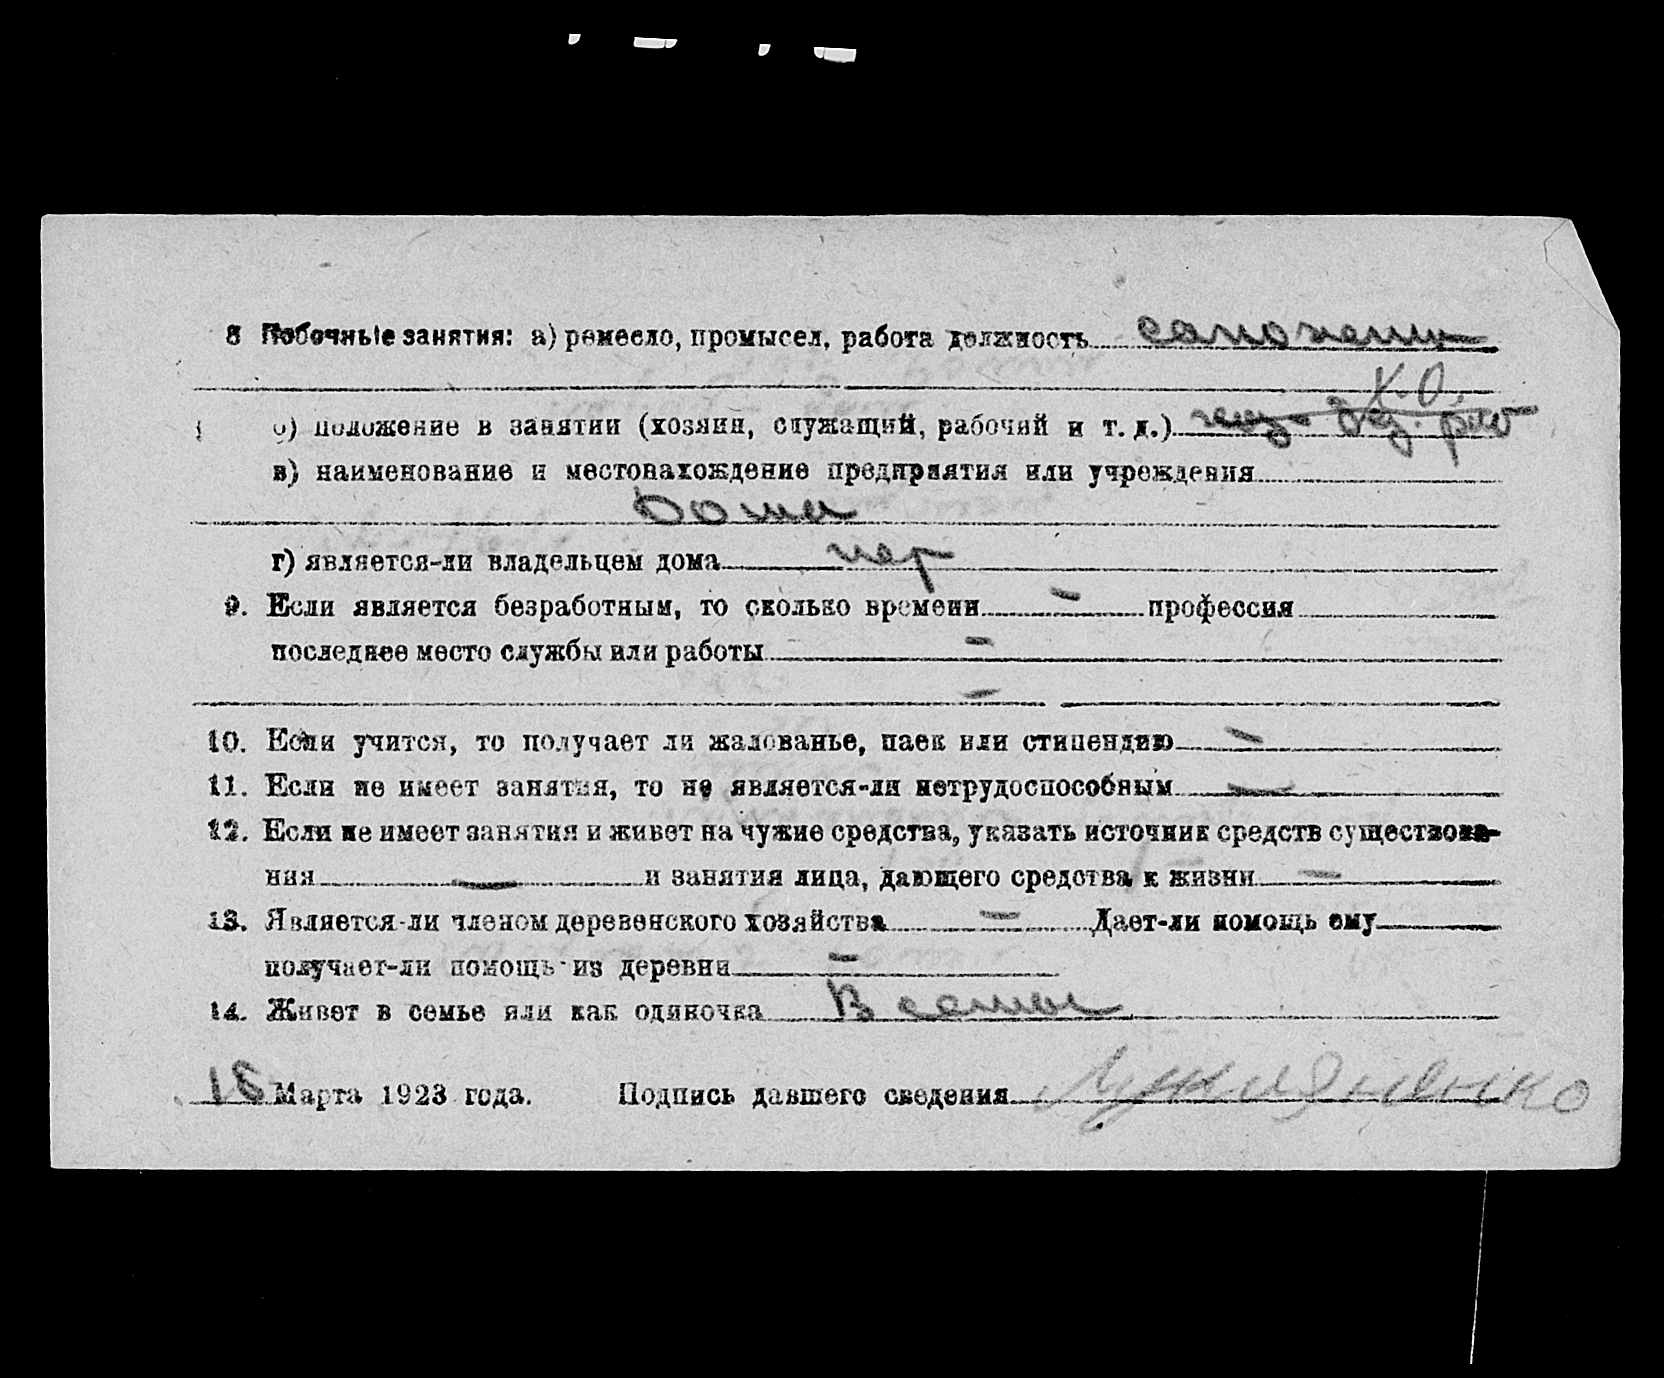 8 Побочные занятия: а) ремесло, промысел, работа должность сапожник
Х.О.
б) положение в занятии (хозяин, служащий, рабочий и т. д.)
в) наименование и местонахождение предприятия или учреждения
Дома
г) является-ли владельцем дома нет
9. Если является безработным, то сколько времени – профессия
последнее место службы или работы –
–
10. Если учится, то получает ли жалованье, паек или стипендию –
11. Если не имеет занятия, то не является-ли нетрудоспособным –
12. Если не имеет занятия и живет на чужие средства, указать источник средств существова-
ния – и занятия лица, дающего средства к жизни –
13. Является-ли членом деревенского хозяйства – Дает-ли помощь ему
получает-ли помощь из деревни –
14. Живет в семье или как одиночка В семье
Марта 1923 года. Подпись давшего сведения Лукияненко